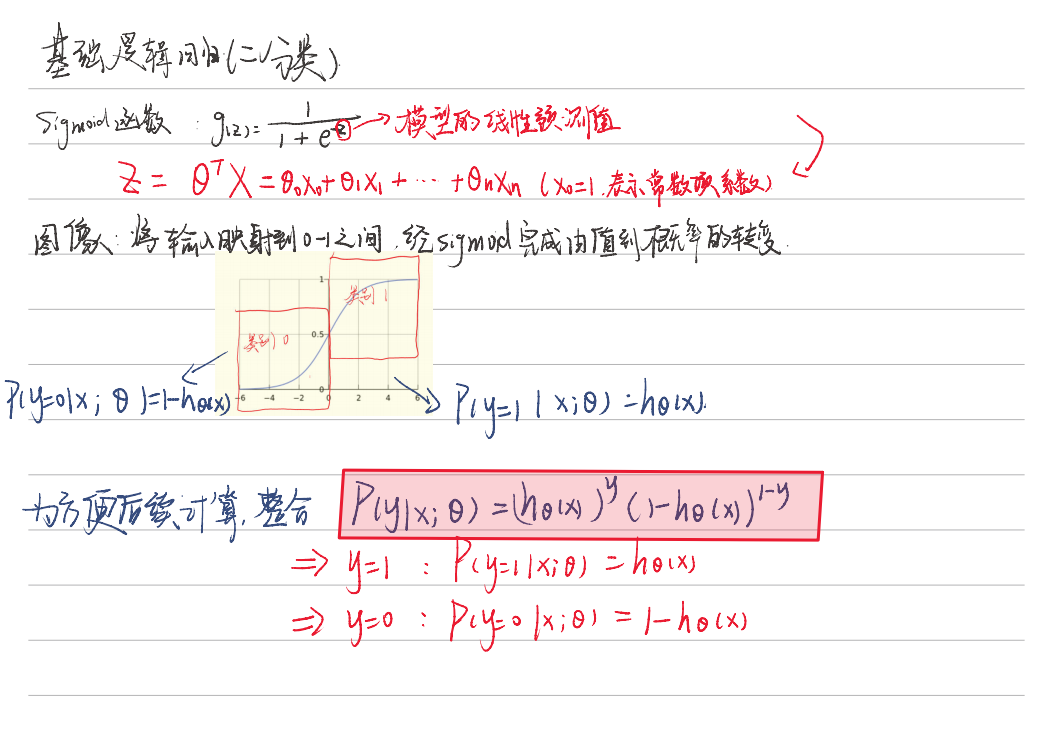 基础逻辑回归(二分类)
Sigmoid函数 : g(z)= 1/(1+e^-z) → 模型的线性预测值
Z = θᵀX = θ₀X₀+θ₁X₁+ … +θₙXₙ (X₀=1, 表示常数项系数)
图像 : 将输入映射到0-1之间, 经sigmod完成由值到概率的转变.
1
类别1
0.5
类别0
0
-6 -4 -2 0 2 4 6
P(y=0|x; θ)=1-hθ(x)
P(y=1 | x;θ) = hθ(x).
为方便后续计算, 整合 P(y|x; θ) = (hθ(x))^y (1-hθ(x))^1-y
⇒ y=1 : P(y=1|x;θ) = hθ(x)
⇒ y=0 : P(y=0|x;θ) = 1-hθ(x)